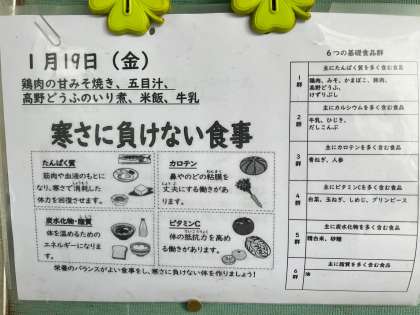 1月19日（金）
鶏肉の甘みそ焼き、五目汁、
高野どうふのいり煮、米飯、牛乳
寒さに負けない食事
たんぱく質
筋肉や血液のもとに
なり、寒さで消耗した
体力を回復させます。
カロテン
鼻やのどの粘膜を
丈夫にする働きがあ
ります。
炭水化物・脂質
体を温めるための
エネルギーになりま
す。
ビタミンC
体の抵抗力を高め
る働きがあります。
栄養のバランスがよい食事をし、寒さに負けない体を作りましょう！
6つの基礎食品群
主にたんぱく質を多く含む食品
1群
鶏肉、みそ、かまぼこ、豚肉、
高野どうふ、
けずりぶし
主にカルシウムを多く含む食品
2群
牛乳、ひじき、
だしこんぶ
主にカロテンを多く含む食品
3群
青ねぎ、人参
主にビタミンCを多く含む食品
4群
白菜、玉ねぎ、しめじ、グリンピース
主に炭水化物を多く含む食品
5群
精白米、砂糖
主に脂質を多く含む食品
6群
油